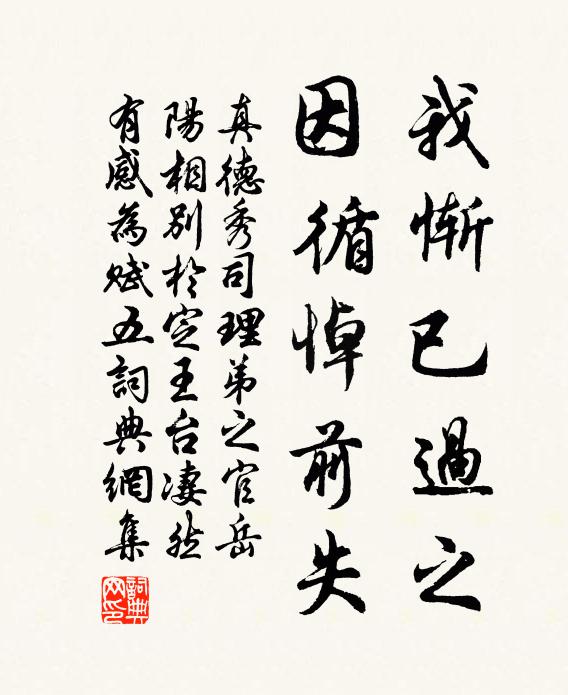 我慚已過之
因循悼前失
真德秀司理弟之官岳
陽相別於定王台凄然
有感為賦五詞典網集
詞典网印